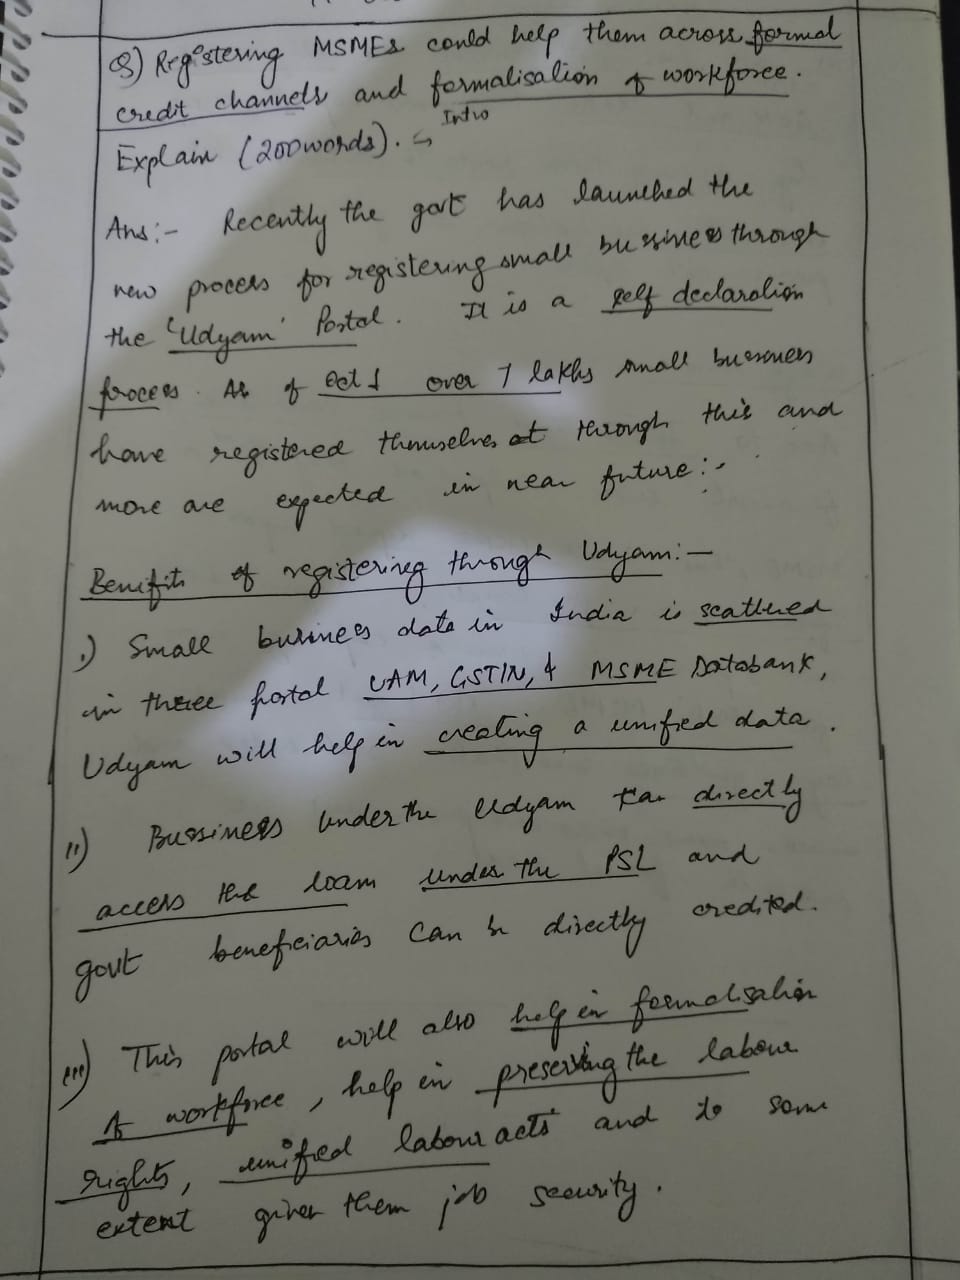 Q) Registering MSMEs could help them across formal
credit channels and formalisation of workforce.
Intro
Explain (200words).
Ans:- Recently the govt has launched the
new process for registering small bussiness through
the 'Udyam' Portal. It is a self declaration
process. As of Oct 1 over 7 lakhs small bussiness
have registered themselves at through this and
more are expected in near future:-
Benifits of registering through Udyam:-
i) Small business data in India is scattered
in three portal UAM, GSTIN, & MSME Databank,
Udyam will help in creating a unified data.
ii) Bussiness under the Udyam can directly
access the loan under the PSL and
govt beneficiaries can be directly credited.
iii) This portal will also help in formalisation
of workforce, help in preserving the labour
rights, unified labour acts and to some
extent given them job security.